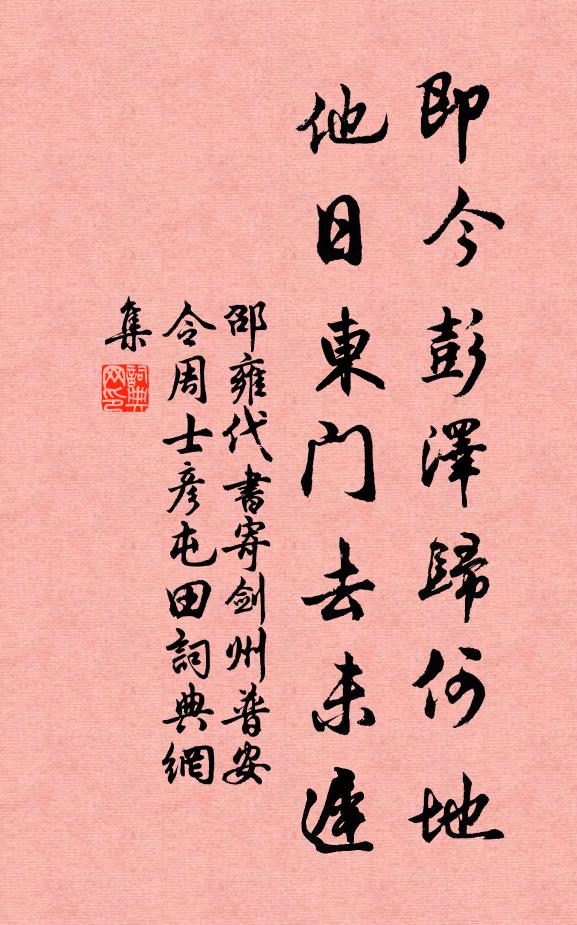 即今彭澤歸何地
他日東門去未遲
邵雍代書寄劍州普安
令周士彥屯田詞典網
集
詞典網印